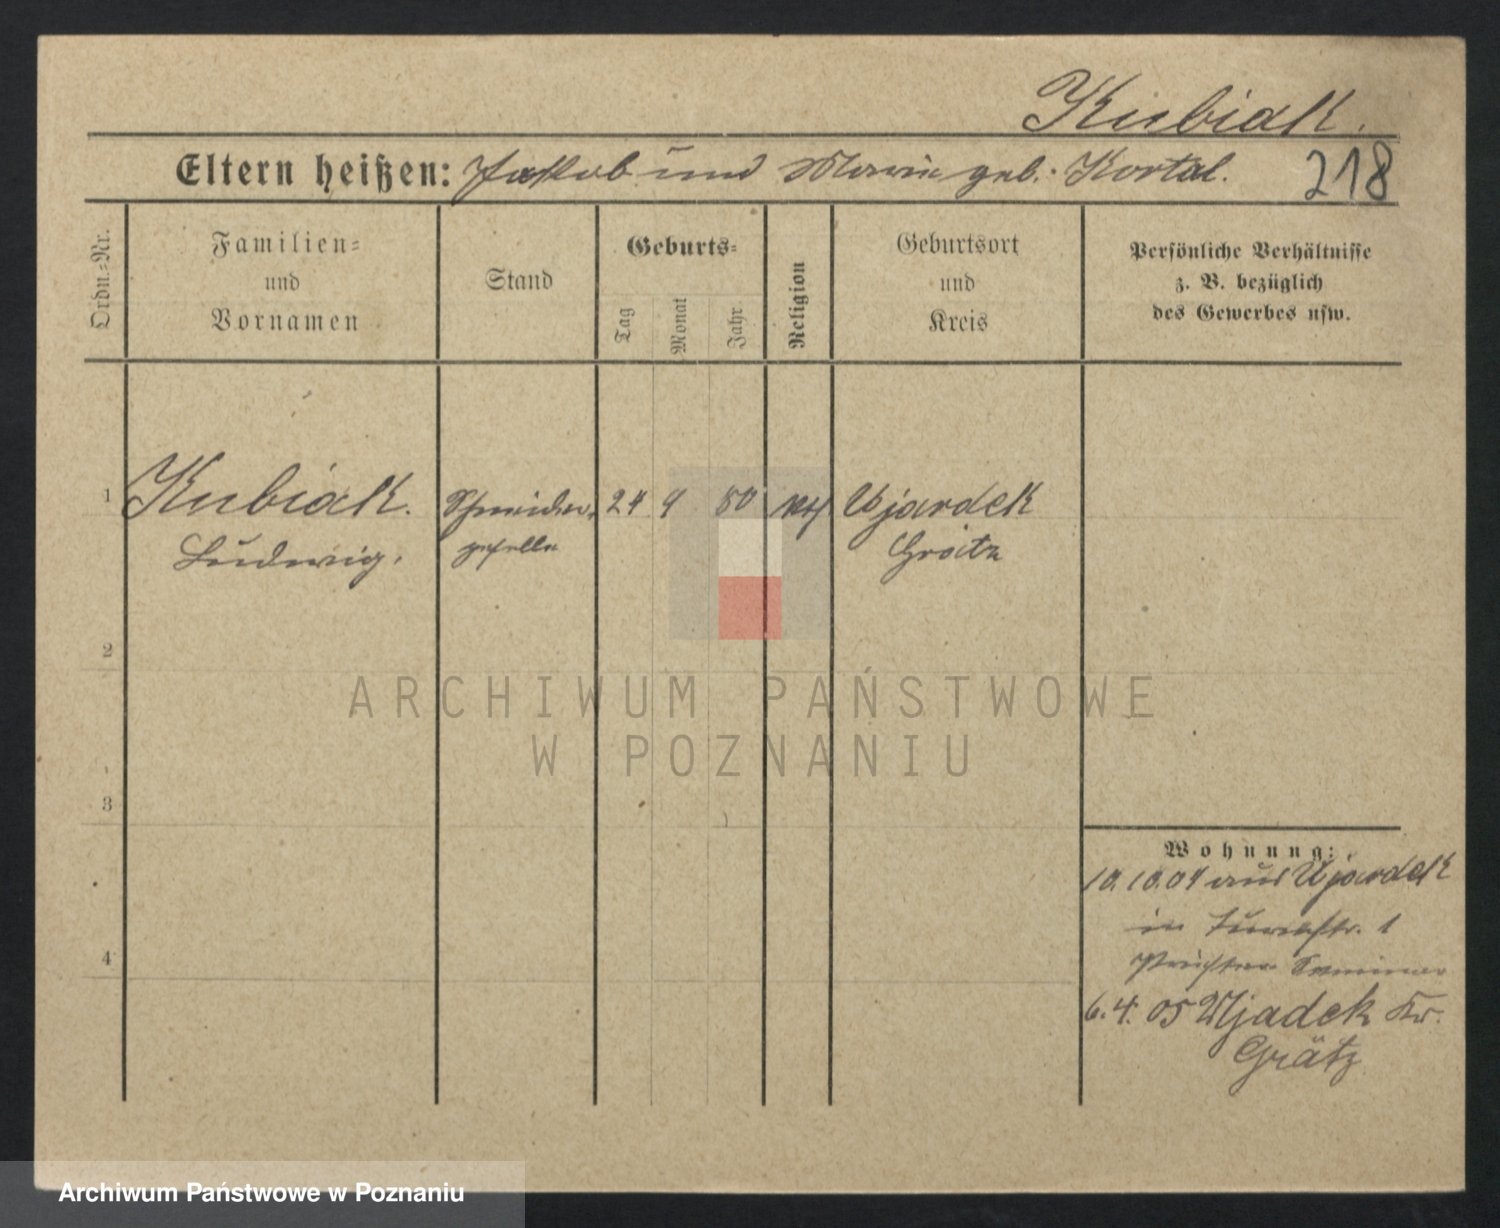 Kubiak.
Eltern heißen: Jakob und Marie geb. Kortal.
218
Ordn.-Nr.
Familien-
und
Vornamen
Stand
Geburts-
Tag
Monat
Jahr
Religion
Geburtsort
und
Kreis
Persönliche Verhältnisse
z. B. bezüglich
des Gewerbes usw.
1
Kubiak.
Ludwig.
Schneider-
geselle
24 9 80
kth
Ujazdek
Grätz
2
ARCHIWUM PAŃSTWOWE
W POZNANIU
3
4
Wohnung:
10.10.04 aus Ujazdek
in Turmstr. 1
Priester Seminar
6. 4. 05 Ujadek Kr.
Grätz
Archiwum Państwowe w Poznaniu